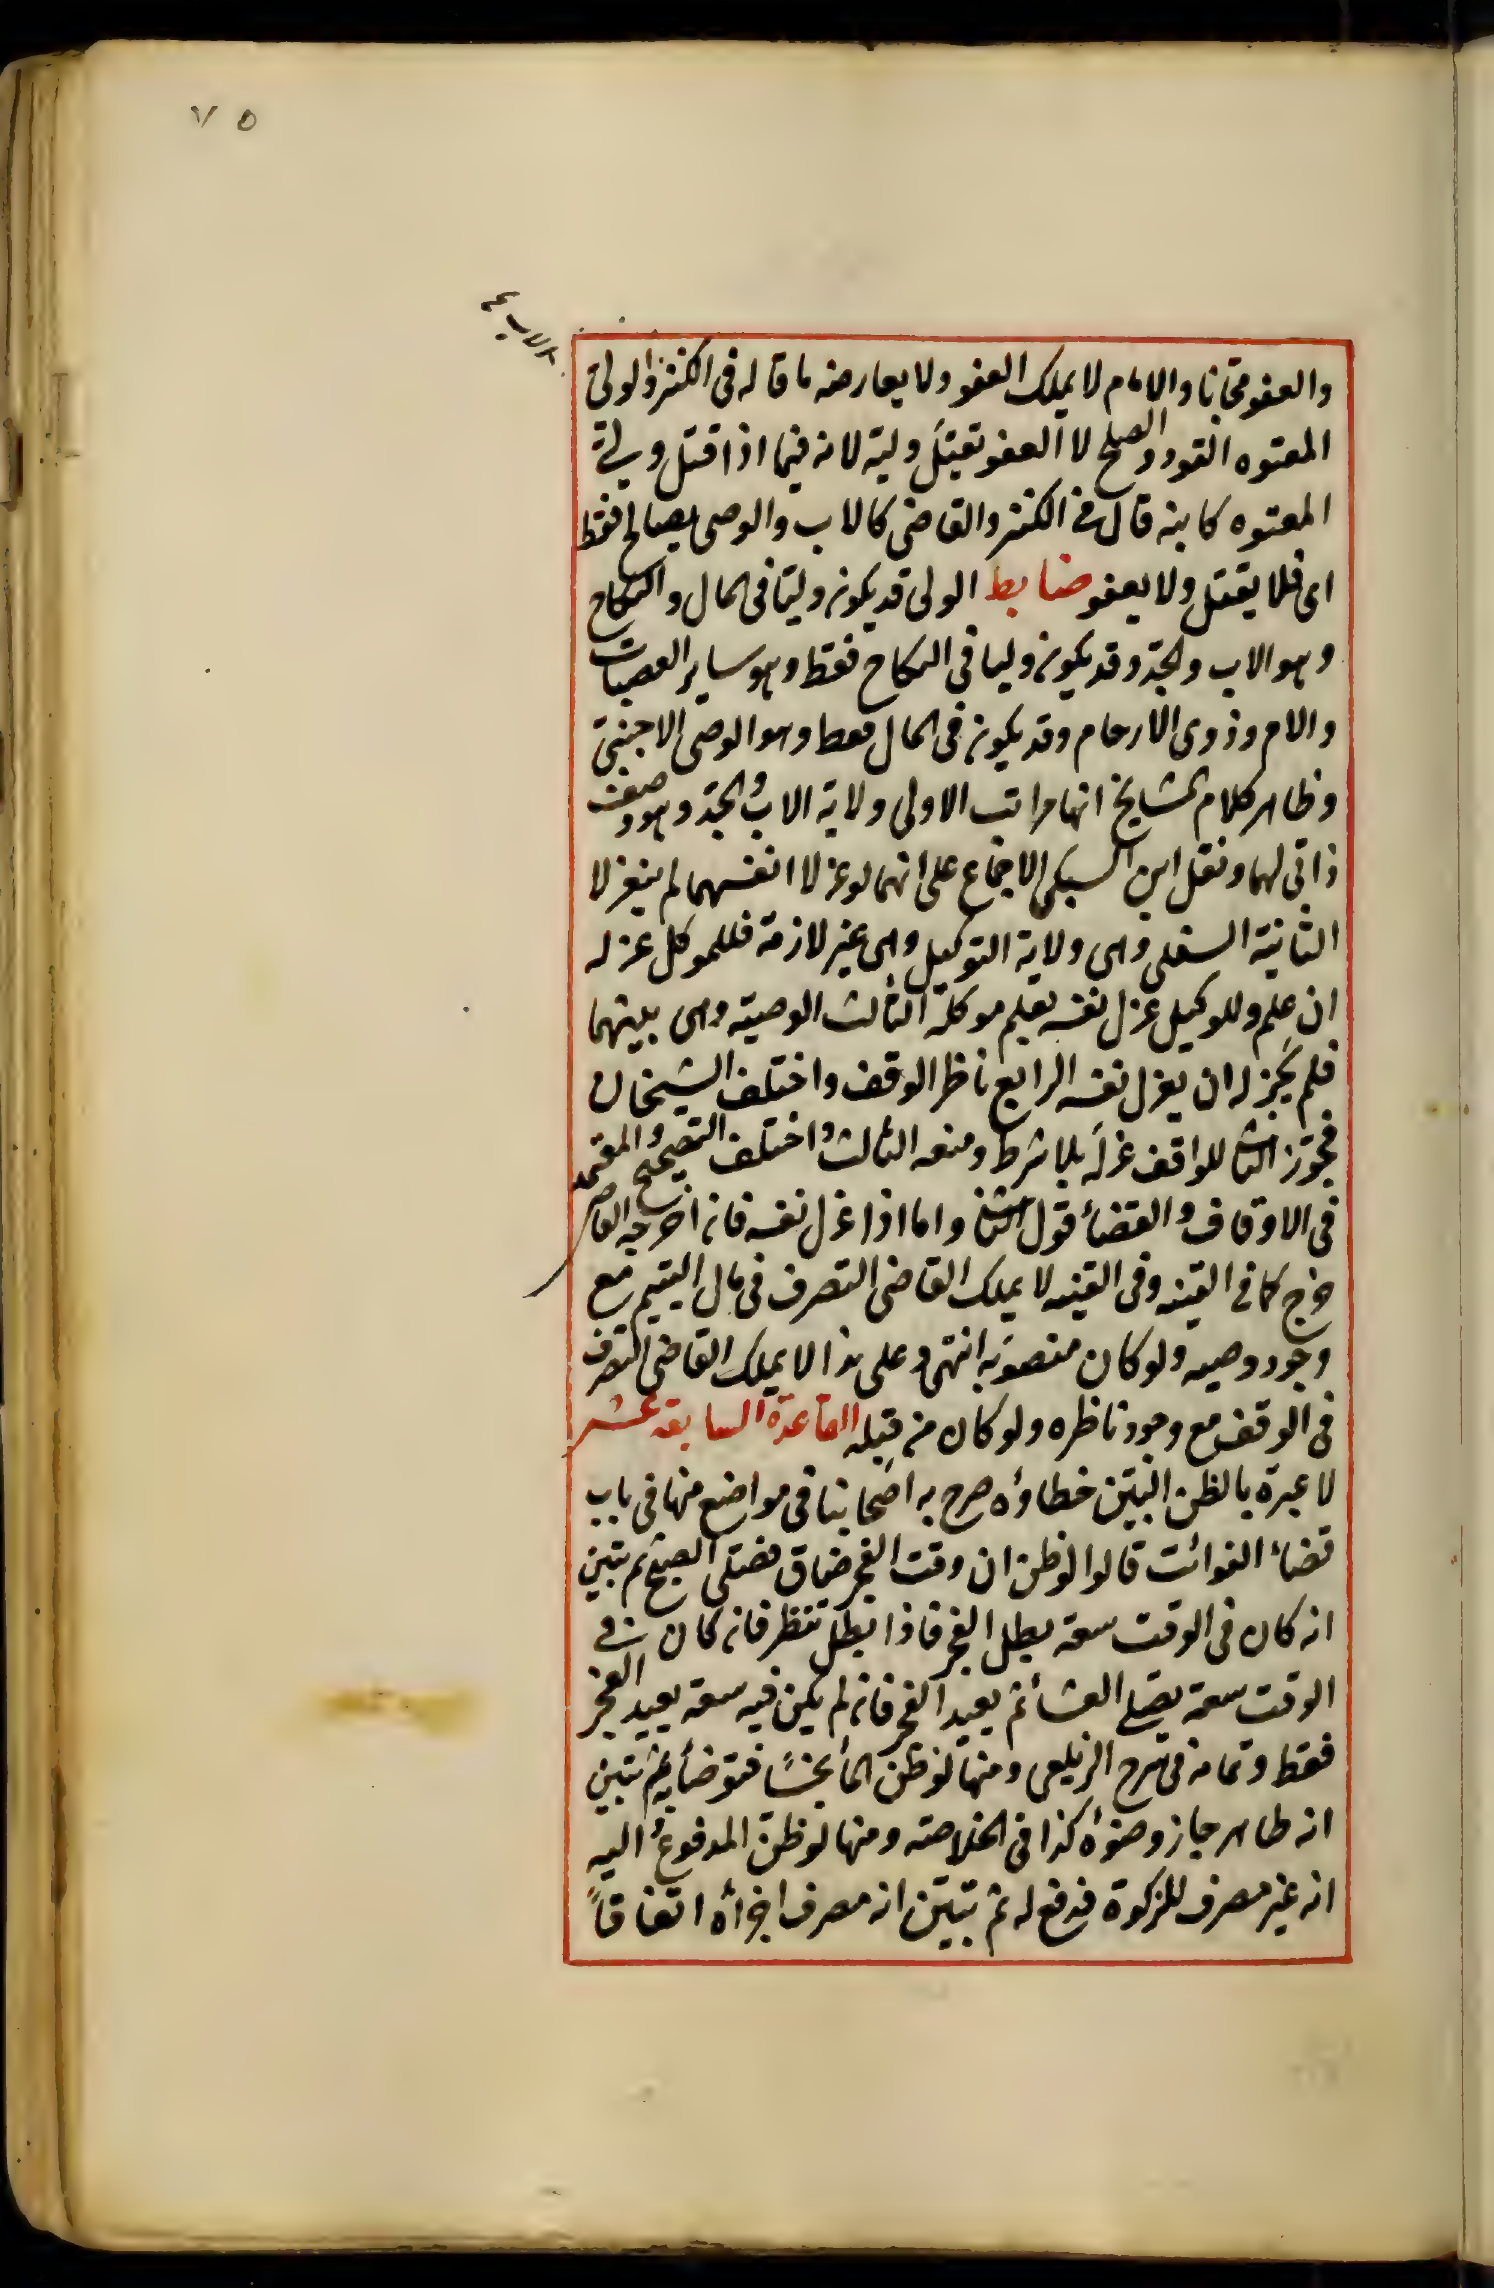 ٧٥
والعفو مجانا والامام لا يملك العفو ولا يعارضه ما قاله فى الكنز ولولى
المعتوه القود والصلح لا العفو بقتل وليه لانه فيما اذا قتل ولى
المعتوه كابنه قال فى الكنز والقاضى كالاب والوصى يصالح فقط
اى فلا يقتل ولا يعفو ضابط الولى قد يكون وليا فى المال والنكاح
وهو الاب والجد وقد يكون وليا فى النكاح فقط وهو ساير العصبات
والام وذوى الارحام وقد يكون فى المال فقط وهو الوصى الاجنبى
وظاهر كلام المشايخ انها مراتب الاولى ولاية الاب والجد وهو وصف
ذاتى لهما ونقل ابن السبكى الاجماع على انهما لو عزلا انفسهما لم ينعزلا
الثانية السفلى وهى ولاية التوكيل وهى غير لازمة فللموكل عزله
ان علم وللوكيل عزل نفسه بعلم موكله الثالث الوصية وهى بينهما
فلم يجز له ان يعزل نفسه الرابع ناظر الوقف واختلف الشيخان
فجوز الثانى للواقف عزله بلا شرط ومنعه الثالث واختلف التصحيح والمعتمد
فى الاوقاف والقضاء قول الثانى واما اذا عزل نفسه فان اخرجه القاضى
خرج كما فى القنية وفى القنية لا يملك القاضى التصرف فى مال اليتيم مع
وجود وصيه ولو كان منصوبه انتهى وعلى هذا لا يملك القاضى التصرف
فى الوقف مع وجود ناظره ولو كان من قبله القاعدة السابعة عشر
لا عبرة بالظن البين خطاؤه صرح به اصحابنا فى مواضع منها فى باب
قضاء الفوائت قالوا لو ظن ان وقت الفجر ضاق فصلى الصبح ثم تبين
انه كان فى الوقت سعة بطل الفجر فاذا بطل تنظر فان كان فى
الوقت سعة يصلى العشاء ثم يعيد الفجر فان لم يكن فيه سعة يعيد الفجر
فقط وتمامه فى شرح الزيلعى ومنها لو ظن الماء نجسًا فتوضأ به ثم تبين
انه طاهر جاز وضوءه كذا فى الخلاصة ومنها لو ظن المدفوع اليه
انه غير مصرف للزكوة فدفع له ثم تبين انه مصرف اجزأه اتفاقاً